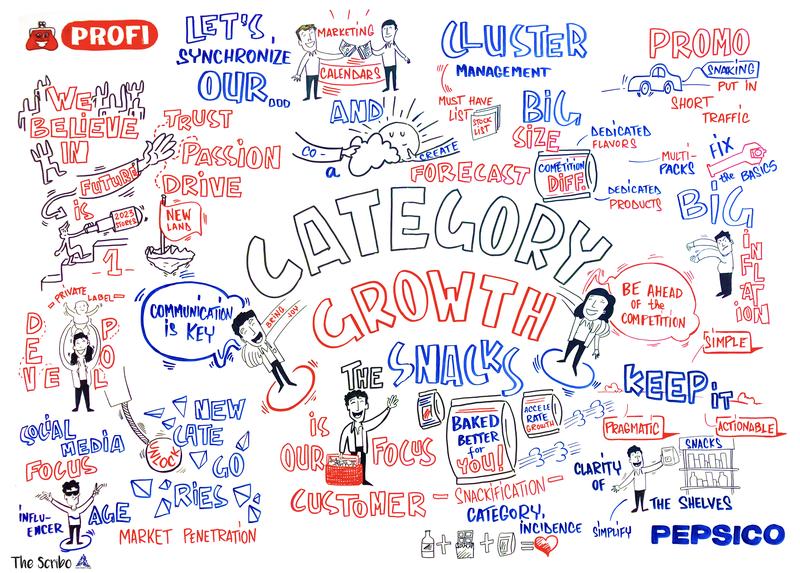 PROFI
LET'S
SYNCHRONIZE
OUR...
MARKETING
CALENDARS
AND
CO-
CREATE
a
FORECAST
CLUSTER
MANAGEMENT
MUST HAVE
LIST
STOCK
LIST
BIG
SIZE
COMPETITION
DIFF.
DEDICATED
FLAVORS
MULTI-
PACKS
DEDICATED
PRODUCTS
PROMO
SNAKING
PUT IN
SHORT
TRAFFIC
FIX
the BASICS
BIG
INFLATION
WE
BELIEVE
IN
FUTURE
is
TRUST
PASSION
DRIVE
2023
STORES
1
NEW
LAND
CATEGORY
GROWTH
PRIVATE
LABEL
DEVE
POL
COMMUNICATION
iS KEY
BRING
JOY
BE AHEAD
OF the
COMPETITION
SIMPLE
KEEP iT
PRAGMATIC
ACTIONABLE
THE SNACKS
BAKED
BETTER
for
YOU!
ACCELE
RATE
GROWTH
SOCIAL
MEDIA
FOCUS
INFLU-
ENCER
AGE
UNLOCK
NEW
CATE
GO
RIES
MARKET PENETRATION
iS
OUR
FOCUS
CUSTOMER
- SNACKIFICATION -
CATEGORY,
INCIDENCE
+ + =
CLARITY
OF
SNACKS
THE SHELVES
SIMPLIFY
PEPSICO
The Scribo